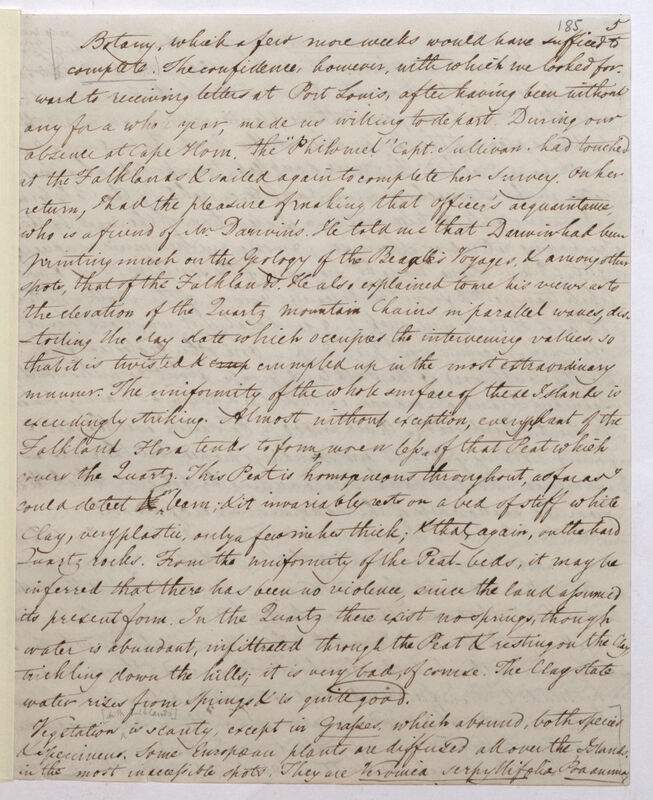 185 5
Botany, which a few more weeks would have sufficed to
complete. The confidence, however, with which we looked for-
ward to receiving letters at Port Louis, after having been without
any for a whole year, made us willing to depart. During our
absence at Cape Horn, the "Philomel" Capt. Sullivan had touched
at the Falklands & sailed again to complete her survey. On her
return, I had the pleasure of making that officer's acquaintance,
who is a friend of Mr Darwin's. He told me that Darwin had been
printing much on the Geology of the Beagle's Voyages, & among other
spots, that of the Falklands. He also explained to me his views as to
the elevation of the Quartz mountain Chains in parallel waves, dis-
-torting the clay slate which occupies the intervening vallies, so
that it is twisted & crup crumpled up in the most extraordinary
manner. The uniformity of the whole surface of these Islands is
exceedingly striking. Almost without exception, every plant of the
Falkland Flora tends to form, more or less, of that Peat which
covers the Quartz. This Peat is homogeneous throughout, as far as I
could detect or learn; & it invariably rests on a bed of stiff white
Clay, very plastic, only a few inches thick; & that, again, on the hard
Quartz rocks. From the uniformity of the Peat-beds, it may be
inferred that there has been no violence, since the land assumed
its present form. In the Quartz there exist no springs, though
water is abundant, infiltrated through the Peat & resting on the Clay,
trickling down the hills; it is very bad, of course. The Clay slate
water rises from springs & is quite good.
Vegetation is scanty, except in Grasses, which abound, both species
& specimens. Some European plants are diffused all over the Islands,
in the most inaccessible spots. They are Veronica serpyllifolia, Poa annua,